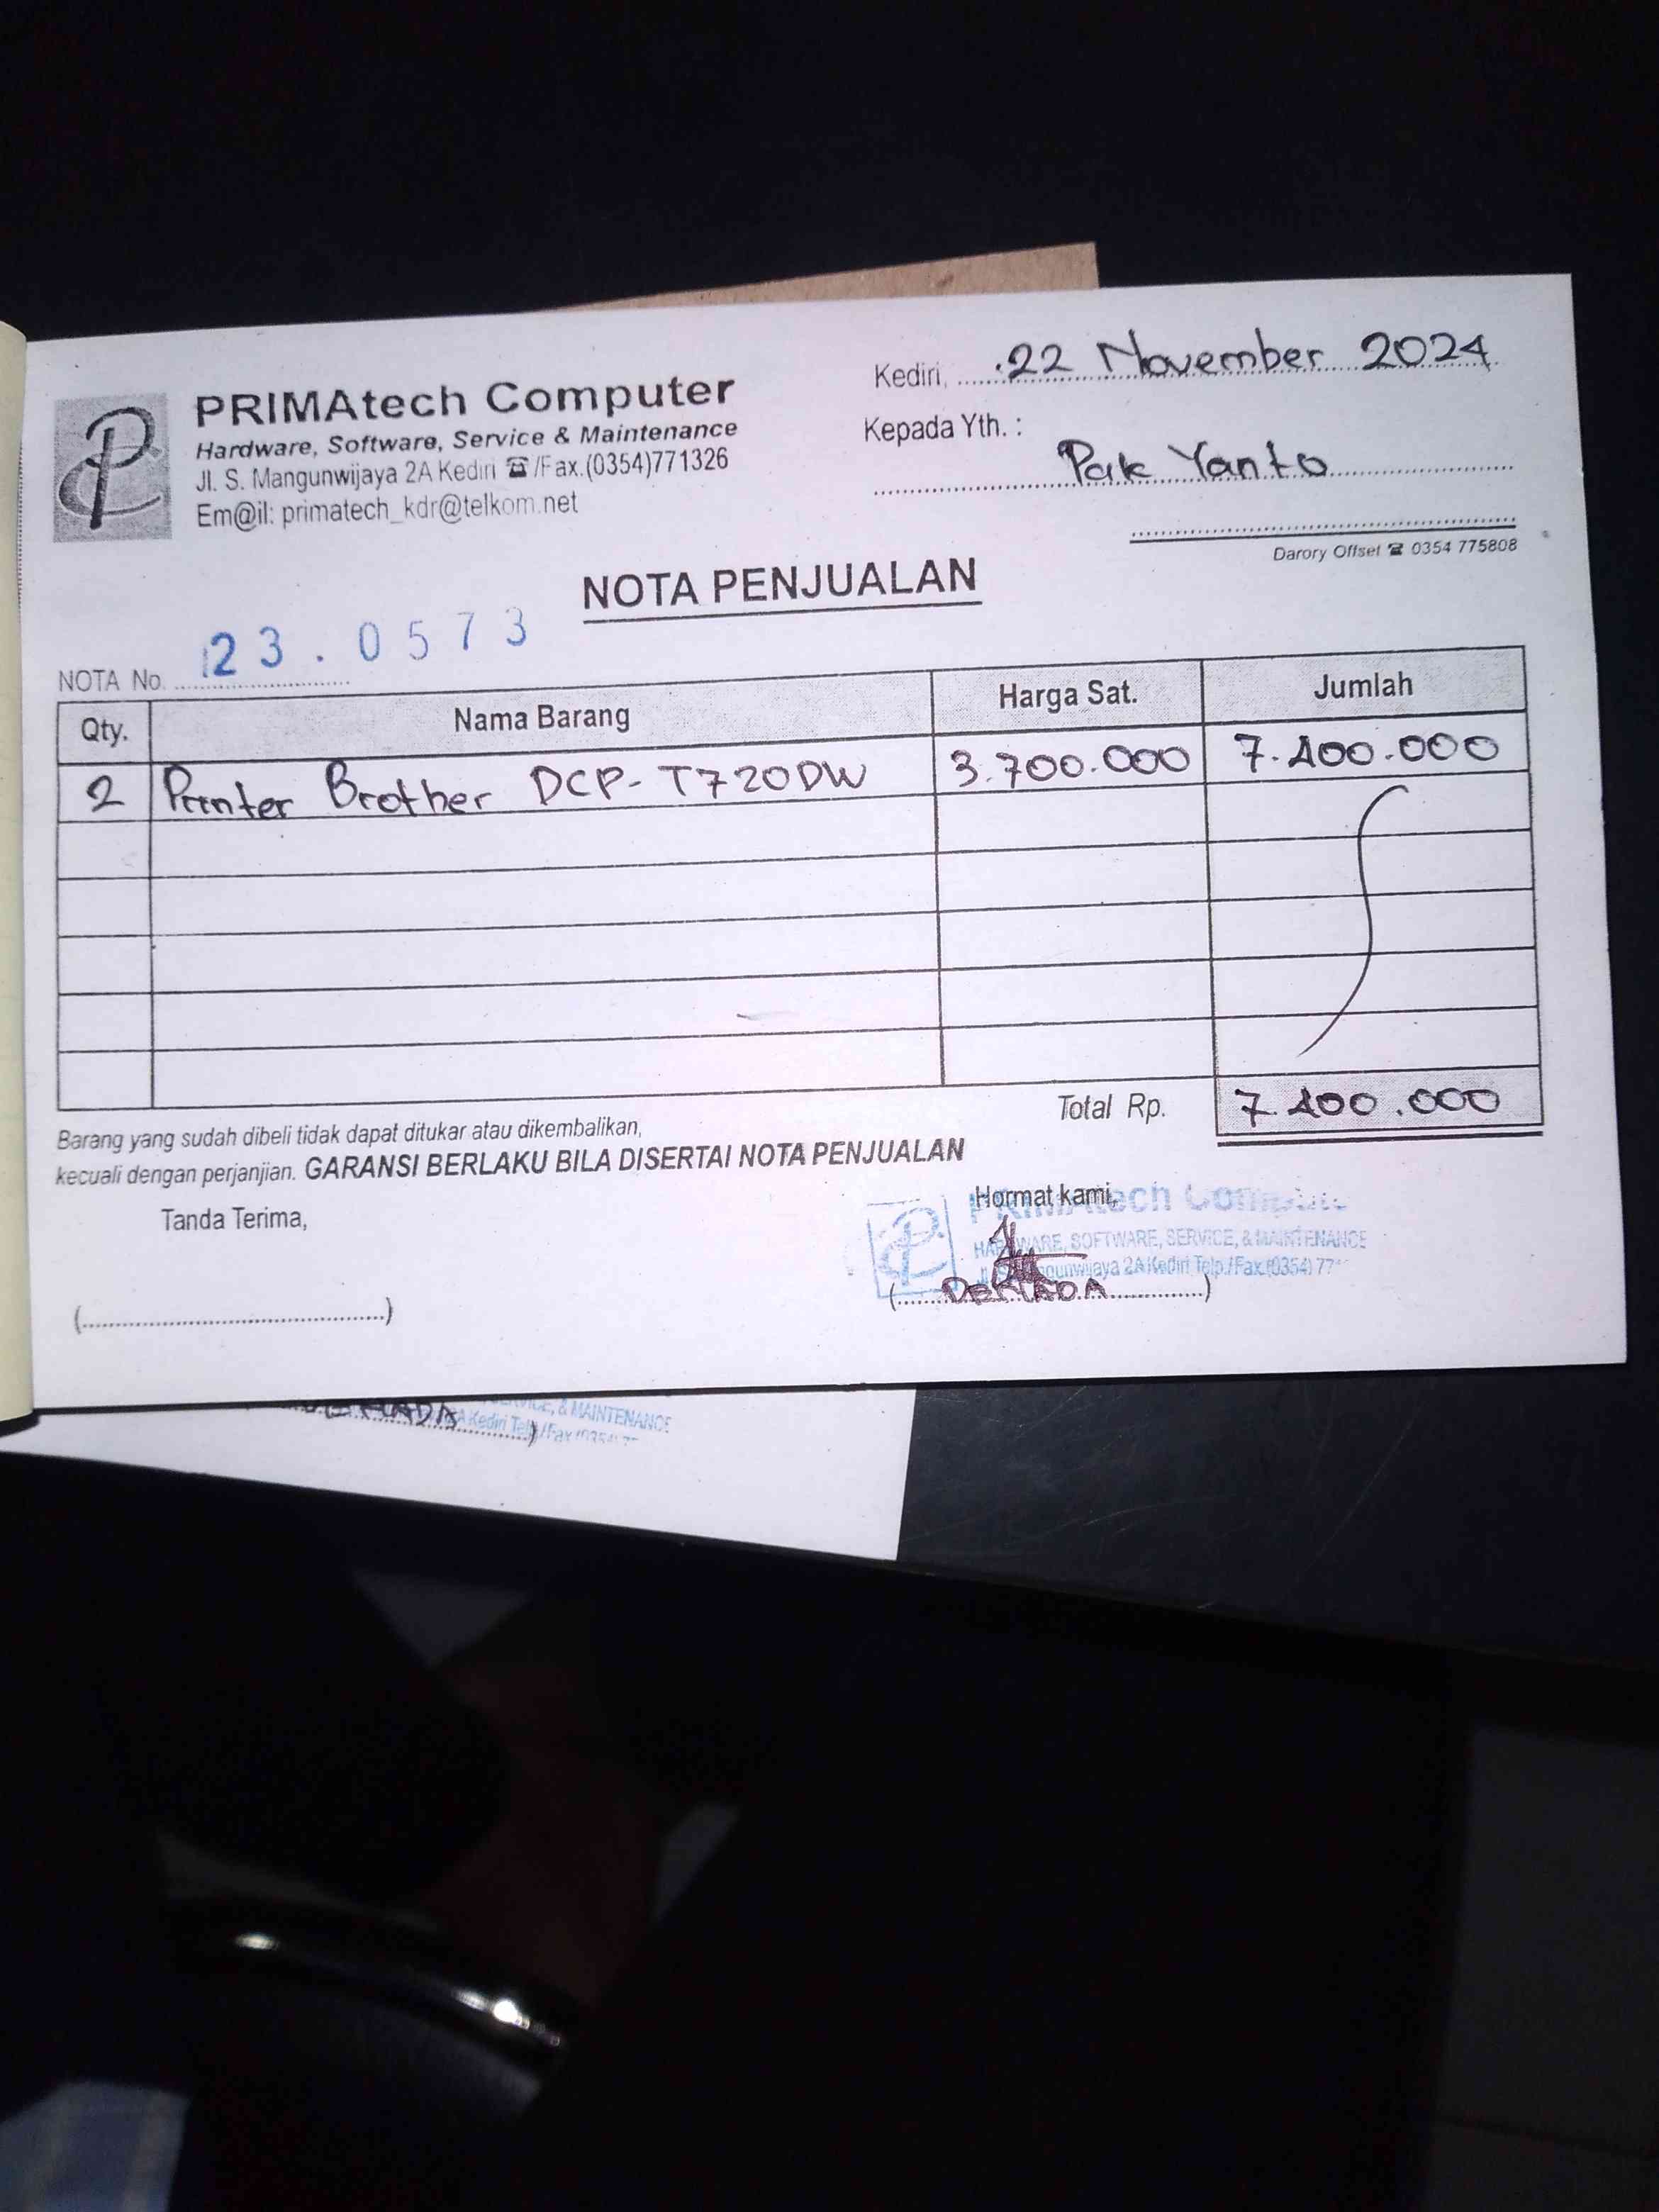 PRIMAtech Computer
Hardware, Software, Service & Maintenance
Jl. S. Mangunwijaya 2A Kediri ☎/Fax.(0354)771326
Em@il: primatech_kdr@telkom.net
Kediri, 22 November 2024
Kepada Yth. :
Pak Yanto
Darory Offset ☎ 0354 775808
NOTA PENJUALAN
NOTA No. 23.0573
Qty. Nama Barang Harga Sat. Jumlah
2 Printer Brother DCP-T720DW 3.700.000 7.400.000
Total Rp. 7.400.000
Barang yang sudah dibeli tidak dapat ditukar atau dikembalikan,
kecuali dengan perjanjian. GARANSI BERLAKU BILA DISERTAI NOTA PENJUALAN
Tanda Terima,
Hormat kami,
PRIMAtech Computer
HARDWARE, SOFTWARE, SERVICE, & MAINTENANCE
Mangunwijaya 2A Kediri Telp./Fax.(0354) 77
(..............................................)
& MAINTENANCE
Kediri Telp./Fax